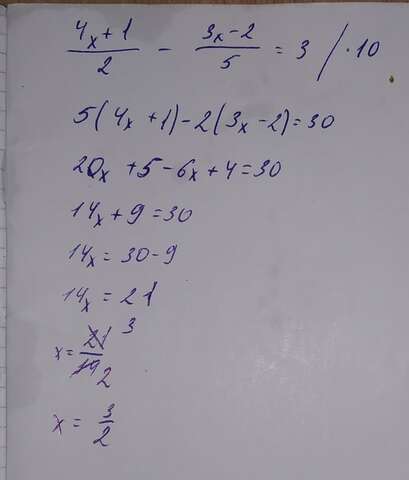 (4x+1)/2 - (3x-2)/5 = 3 / ·10
5(4x+1)-2(3x-2)=30
20x+5-6x+4=30
14x+9=30
14x=30-9
14x=21
x=21/14 3/2
x=3/2